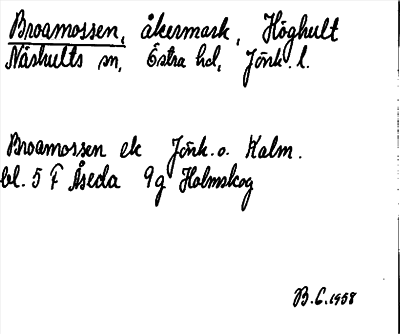 Broamossen, åkermark, Höghult
Näshults sn, Östra hd, Jönk. l.
Broamossen ek Jönk. o. Kalm.
bl. 5 F Åseda 9g Holmskog
B.C. 1958